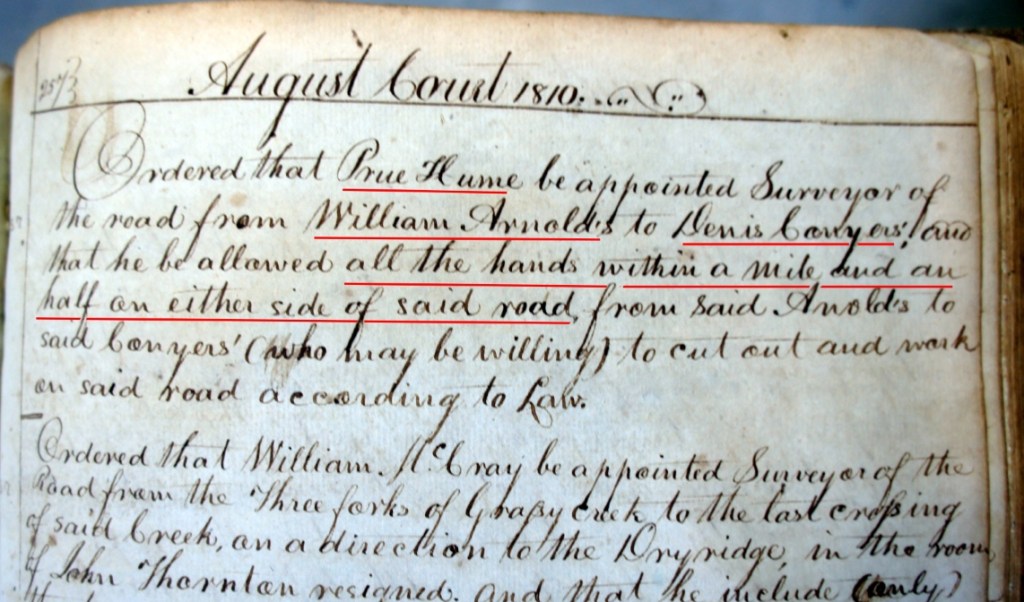 257
August Court 1810.
Ordered that Prue Hume be appointed Surveyor of
the road from William Arnold's to Denis Conyers', and
that he be allowed all the hands within a mile and an
half on either side of said road, from said Arnolds to
said Conyers' (who may be willing) to cut out and work
on said road according to Law.
Ordered that William McCray be appointed Surveyor of the
Road from the Three forks of Graßy creek to the last croßing
of said Creek, on a direction to the Dryridge, in the room
of John Thornton resigned. And that he include (only)